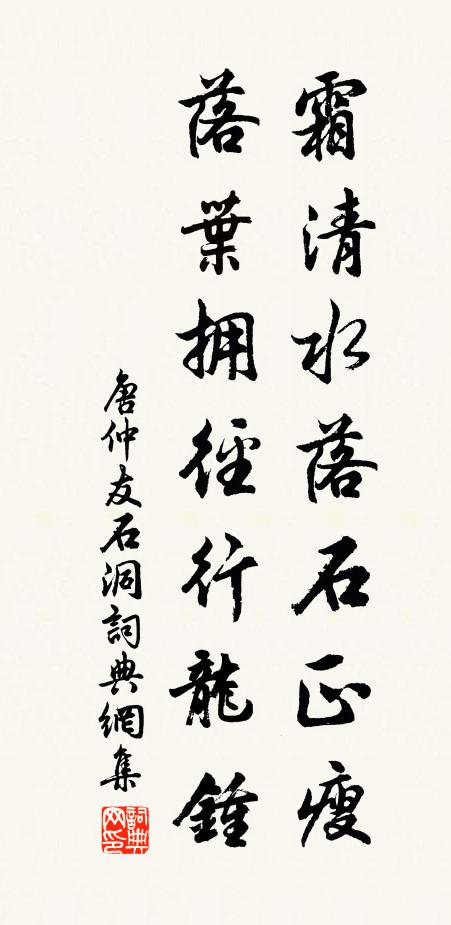 霜清水落石正瘦
落葉擁徑行龍鍾
唐仲友石洞詞典網集
詞典网印